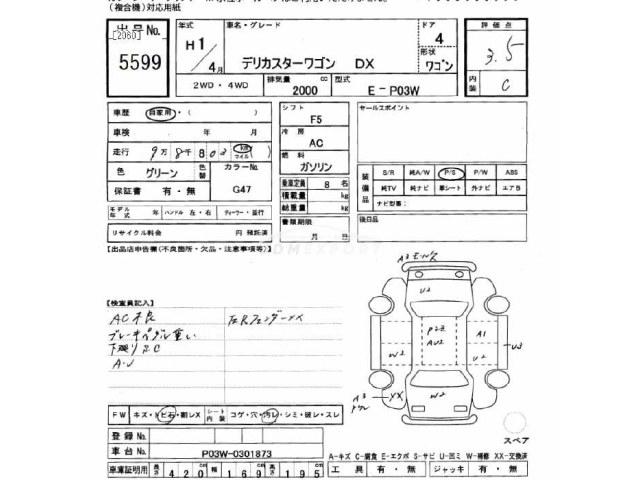 (複合機)対応用紙
出品No.
[2080]
5599
年式
H1/4月
車名・グレード
デリカスターワゴン DX
ドア
4
形状
ワゴン
評価点
3.5
内装
C
2WD・4WD
排気量
2000 cc
型式
E-P03W
車歴 自家用・( )
車検 年 月
走行 9万8千803 km マイル
色 グリーン
色替
カラーNo.
G47
保証書 有・無
モデル年式 年 ハンドル 左・右 ディーラー・並行
リサイクル料金 円 預託済
シフト
F5
冷房
AC
燃料
ガソリン
乗車定員 8 名
積載量 kg
総重量 kg
書類期限
月 日
セールスポイント
装備品
S/R 純A/W P/S P/W ABS
純TV 純ナビ 革シート 外ナビ エアB
ナビ型番:
後日品
【出品店申告欄(不良箇所・欠品・注意事項等)】
【検査員記入】
AC不良
ブレーキペダル重い
下廻りSC
A・U
左Rフェンダーxx
U2
A1
U3
U2
W2
W2
xx
FW キズ・トビ石・割レX
シート内装
コゲ・穴・汚レ・シミ・破レ・スレ
登録No.
車台No.
P03W-0301873
スペア
A-キズ C-腐食 E-エクボ S-サビ U-凹ミ W-補修 XX-交換済
車庫証明用 長さ 420 cm 幅 169 cm 高さ 195 cm
工具 有・無 ジャッキ 有・無